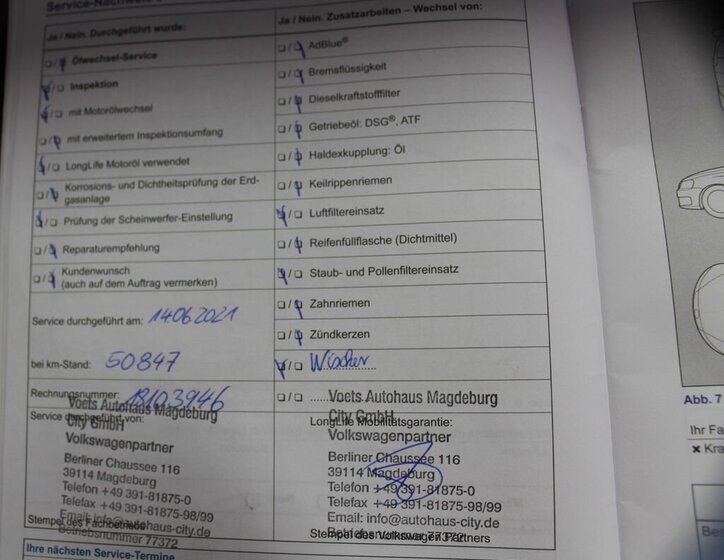 Service-Nachweis
Ja / Nein. Durchgeführt wurde:
Ölwechsel-Service
Inspektion
mit Motorölwechsel
mit erweitertem Inspektionsumfang
LongLife Motoröl verwendet
Korrosions- und Dichtheitsprüfung der Erd-
gasanlage
Prüfung der Scheinwerfer-Einstellung
Reparaturempfehlung
Kundenwunsch
(auch auf dem Auftrag vermerken)
Service durchgeführt am: 14062021
bei km-Stand: 50847
Rechnungsnummer:
Service durchgeführt von:
Voets Autohaus Magdeburg
City GmbH
Volkswagenpartner
Berliner Chaussee 116
39114 Magdeburg
Telefon +49 391-81875-0
Telefax +49 391-81875-98/99
Email: info@autohaus-city.de
Betriebsnummer 77372
Stempel des Fachbetriebs
Ihre nächsten Service-Termine
Ja / Nein. Zusatzarbeiten – Wechsel von:
AdBlue®
Bremsflüssigkeit
Dieselkraftstofffilter
Getriebeöl: DSG®, ATF
Haldexkupplung: Öl
Keilrippenriemen
Luftfiltereinsatz
Reifenfüllflasche (Dichtmittel)
Staub- und Pollenfiltereinsatz
Zahnriemen
Zündkerzen
Wischer
LongLife Mobilitätsgarantie:
Voets Autohaus Magdeburg
City GmbH
Volkswagenpartner
Berliner Chaussee 116
39114 Magdeburg
Telefon +49 391-81875-0
Telefax +49 391-81875-98/99
Email: info@autohaus-city.de
Stempel des Volkswagen Partners
Abb. 7
Ihr Fa
Kra